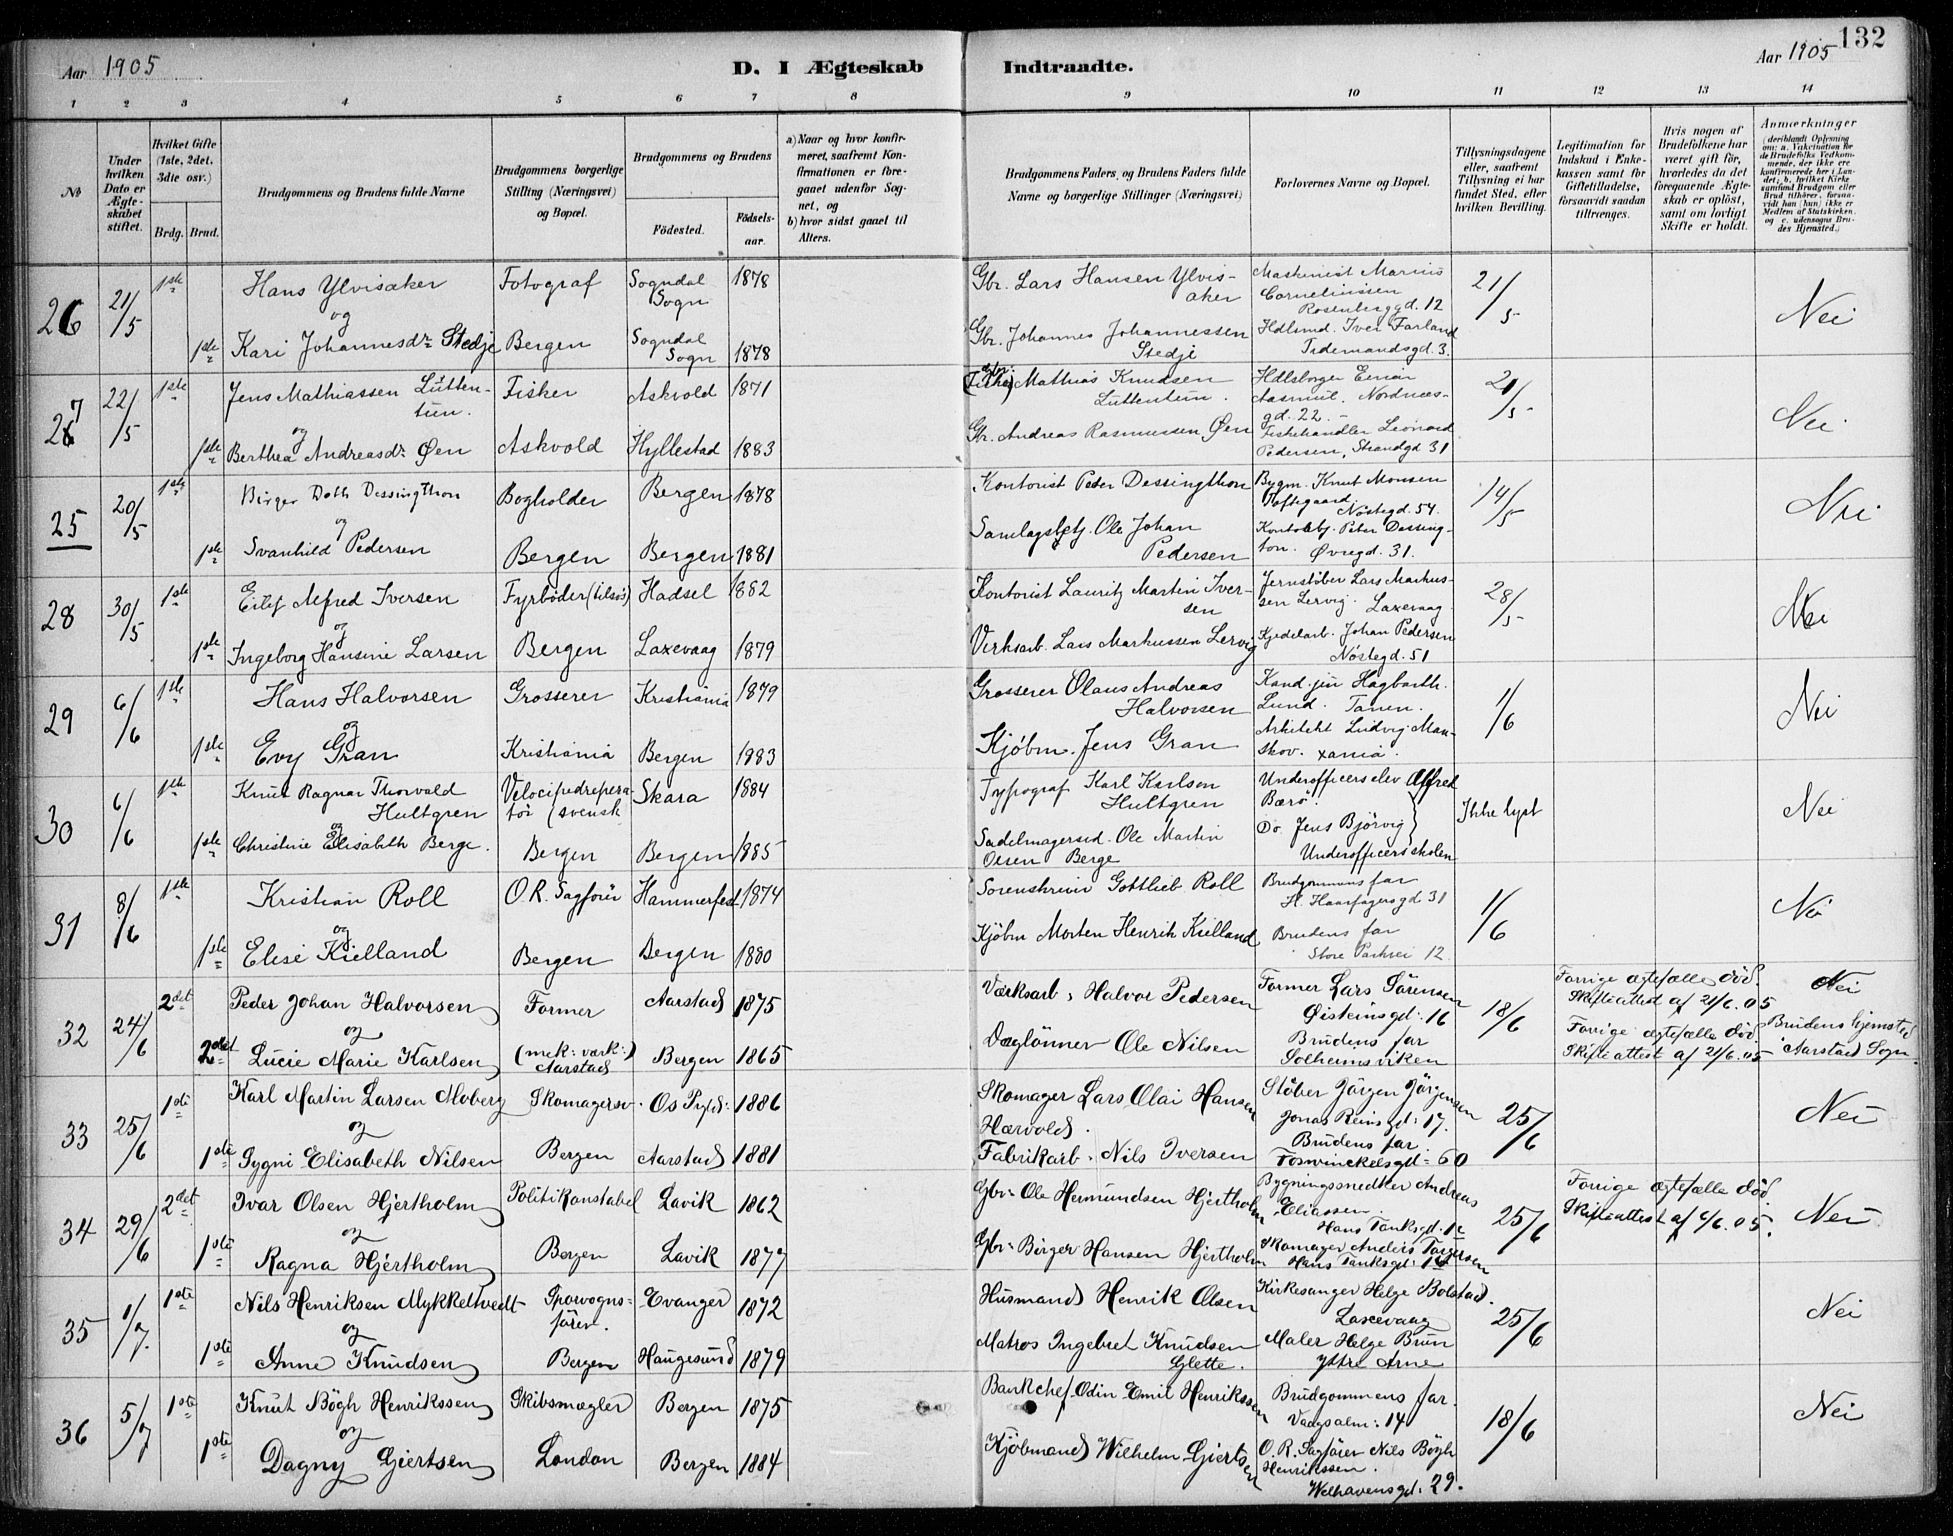 132
Aar 1905
D. I Ægteskab Indtraadte.
Aar 1905
1 2 3 4 5 6 7 8 9 10 11 12 13 14
No
Under hvilken Dato er Ægteskabet stiftet.
Hvilket Gifte (1ste, 2det, 3die osv.)
Brdg. Brud.
Brudgommens og Brudens fulde Navne
Brudgommens borgerlige Stilling (Næringsvei) og Bopæl.
Brudgommens og Brudens
Födested. Födselsaar.
a) Naar og hvor konfirmeret, saafremt Konfirmationen er foregaaet udenfor Sognet, og
b) hvor sidst gaaet til Alters.
Brudgommens Faders og Brudens Faders fulde Navne og borgerlige Stillinger (Næringsvei)
Forlovernes Navne og Bopæl.
Tillysningsdagene eller, saafremt Tillysning ei har fundet Sted, efter hvilken Bevilling.
Legitimation for Indskud i Enkekassen samt for Giftetilladelse, forsaavidt saadan tiltrænges.
Hvis nogen af Brudefolkene har været gift för, hvorledes da det foregaaende Ægteskab er oplöst, samt om lovligt Skifte er holdt.
Anmærkninger (deriblandt Oplysning om: a. Vakcination for de Brudefolks Vedkommende, der ikke ere konfirmerede her i Landet; b. hvilket Kirkesamfund Brudgom eller Brud tilhører, forsaavidt han (hun) ikke er Medlem af Statskirken, og c. udensogns Brudes Hjemsted.)
26 21/5 1ste Hans Ylvisaker Fotograf Sogndal Sogn 1878 Gbr. Lars Hansen Ylvisaker Maskinist Marius Corneliussen Rosenberggd. 12 21/5 Nei
og
1ste Kari Johannesdr Stedje Bergen Sogndal Sogn 1878 Gbr. Johannes Johannessen Stedje Hdlsmd. Iver Farland Tidemandsgd 3.
27 22/5 1ste Jens Mathiassen Luttentun. Fisker Askvold 1871 (Fisker) gbr: Mathias Knudsen Luttentun. Hdlsborger Einar Aasmul. Nordnæsgd. 22. 21/5 Nei
og
1ste Berthea Andreasdr Øen Askvold Hyllestad 1883 Gbr. Andreas Rasmussen Øen Fiskehandler Leonard Pedersen, Strandgd 31
25 20/5 1ste Birger Doth Dessingthon Bogholder Bergen 1878 Kontorist Peter Dessingthon Bygm. Knut Monsen Toftegaard Nöstegd. 54. 14/5 Nei
og
1ste Svanhild Pedersen Bergen Bergen 1881 Samlagsbetj. Ole Johan Pedersen Kontorbtj. Peter Dessington. Øvregd. 31.
28 30/5 1ste Eilef Alfred Iversen Fyrböder (tilsös) Hadsel 1882 Kontorist Lauritz Martin Iversen Jernstöber Lars Markussen Lervig. Laxevaag 28/5 Nei
og
1ste Ingeborg Hansine Larsen Bergen Laxevaag 1879 Verksarb. Lars Markussen Lervig Kjedelarb. Johan Pedersen Nöstegd. 51
29 6/6 1ste Hans Halvorsen Grosserer Kristiania 1879 Grosserer Olaus Andreas Halvorsen Kand. jur Hagbarth. Lund. Tanen. 1/6 Nei
og
1ste Evy Gran Kristiania Bergen 1883 Kjøbm. Jens Gran Arkitekt Ludvig Manskov. xania.
30 6/6 1ste Knut Ragnar Thorvald Hultgren Velocipedreperatör (svensk Skara 1884 Typograf Karl Karlson Hultgren Underofficerselev Alfred Bærö. Ikke lyst Nei
og
1ste Christine Elisabeth Berge. Bergen Bergen 1885 Sadelmagersvd. Ole Martin Olsen Berge Do Jens Björvig Underofficersskolen
31 8/6 1ste Kristian Roll O.R. Sagförer Hammerfest 1874 Sorenskriver Gottlieb Roll Brudgommens far H. Haarfagersgd 31 1/6 Nei
og
1ste Elise Kielland Bergen Bergen 1880 Kjöbm Morten Henrik Kielland Brudens far Store Parkvei 12
32 24/6 2det Peder Johan Halvorsen Former Aarstad 1875 Værksarb. Halvor Pedersen Former Lars Sörensen Øisteinsgd: 16 18/6 Forrige ægtefælle död. Skifteattest af 21/6.05 Nei
og
2det Lucie Marie Karlsen (mek: værk:) Aarstad Bergen 1865 Daglönner Ole Nilsen Brudens far Solheimsviken Forrige ægtefælle död. Skifteattest af 21/6.05 Brudens hjemsted Aarstad Sogn.
33 25/6 1ste Karl Martin Larsen Moberg Skomagersv. Os Pgld: 1886 Skomager Lars Olai Hansen Hærvold. Stöber Jörgen Jörgensen Jonas Reinsgd: 17. 25/6 Nei
og
1ste Gygni Elisabeth Nilsen Bergen Aarstad 1881 Fabrikarb. Nils Iversen Brudens far Foswinckelsgd: 60
34 29/6 2det Ivar Olsen Hjertholm Politikonstabel Lavik 1862 Gbr: Ole Hermundsen Hjertholm Bygningssnedker Andreas Eliassen. Hans Tanksgd. 25/6 Forrige ægtefælle död Skifteattest af 6/6.05. Nei
og
1ste Ragna Hjertholm Bergen Lavik 1877 Gbr: Birger Hansen Hjertholm Skomager Anders Torgersen Hans Tanksgd:
35 1/7. 1ste Nils Henriksen Mykkeltvedt Sporvognsförer. Evanger 1872 Husmand Henrik Olsen Kirkesanger Helge Bolstad. Laxevaag 25/6 Nei
og
1ste Anne Knudsen Bergen Haugesund 1879 Matros Ingebret Knudsen Glette. Maler Helge Brun Ytre Arne
36 5/7 1ste Knut Bögh Henrikssen Skibsmægler Bergen 1875 Bankchef Odin Emil Henrikssen Brudgommens far. Vaagsalm: 14 18/6 Nei
og
1ste Dagny Giertsen London Bergen 1884 Kjöbmand Wilhelm Giertsen O.R. Sagförer Nils Bögh Henrikssen. Welhavensgd. 29.